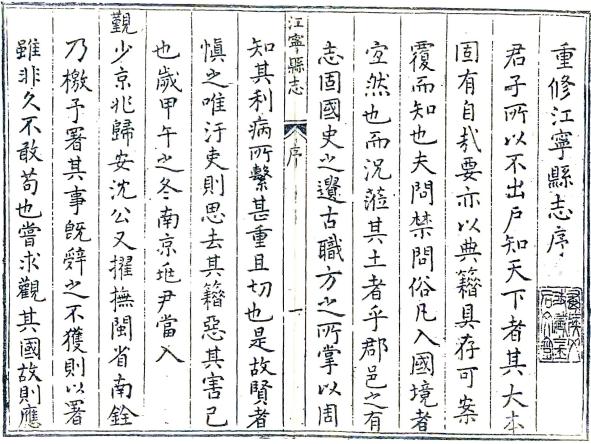 重修江寧縣志序
君子所以不出戶知天下者其大本
固有自哉要亦以典籍具存可案
覆而知也夫問禁問俗凡入國境者
宜然也而況蒞其土者乎郡邑之有
志固國史之邊古職方之所掌以周
江寧縣志 序 一
知其利病所繫甚重且切也是故賢者
慎之唯汙吏則思去其籍惡其害己
也歲甲午之冬南京兆尹當入
覲少京兆歸安沈公又擢撫閩省南銓
乃檄予署其事既辭之不獲則以署
雖非久不敢苟也嘗求觀其國故則應